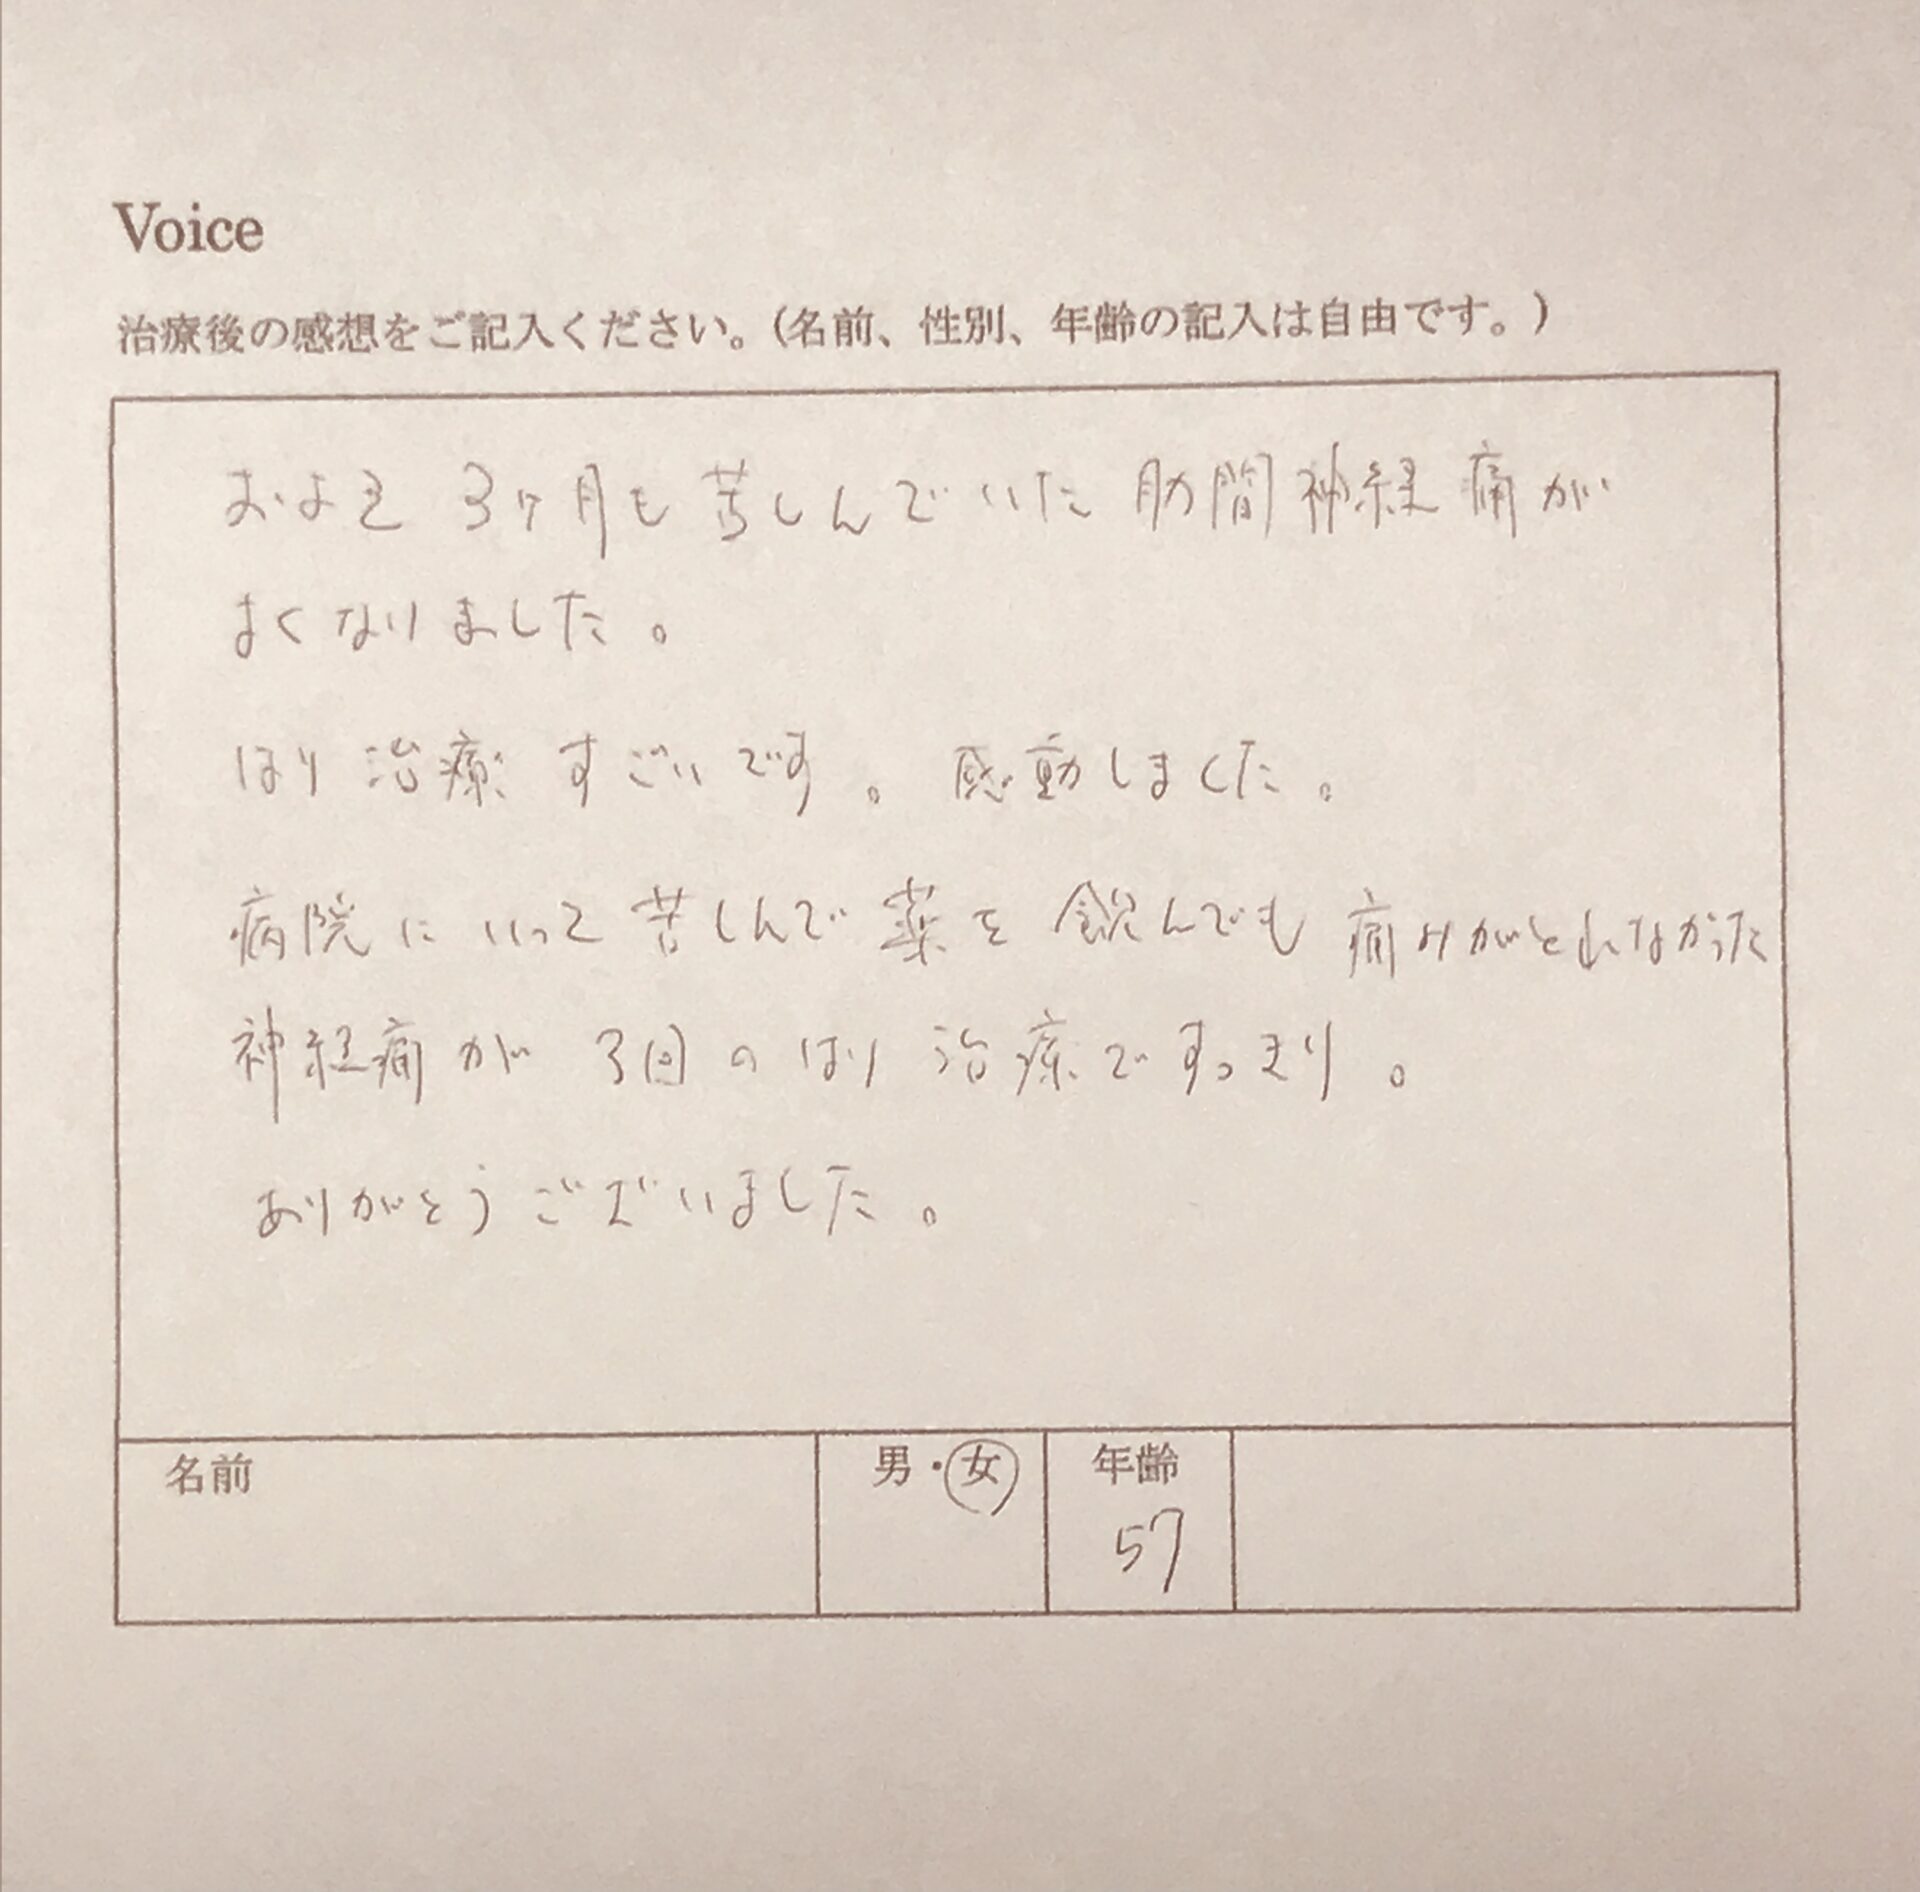 Voice
治療後の感想をご記入ください。（名前、性別、年齢の記入は自由です。）
およそ 3ヶ月も 苦しんでいた 肋間神経痛が
よくなりました。
はり治療 すごいです。感動しました。
病院に いって 苦しんで 薬を 飲んでも 痛みがとれなかった
神経痛が 3回の はり 治療ですっきり。
ありがとう ございました。
名前 男・女 年齢
57